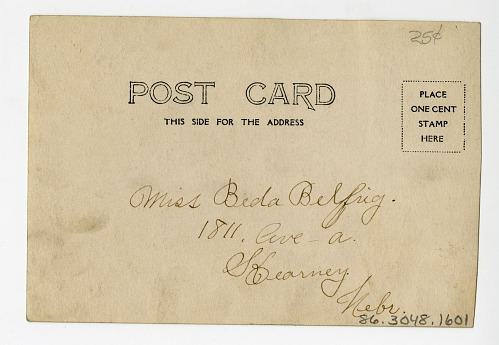 25¢
POST CARD
THIS SIDE FOR THE ADDRESS
PLACE
ONE CENT
STAMP
HERE
Miss Beda Belfrig.
1811. Ave - a.
Kearney
Nebr.
86.3048.1601